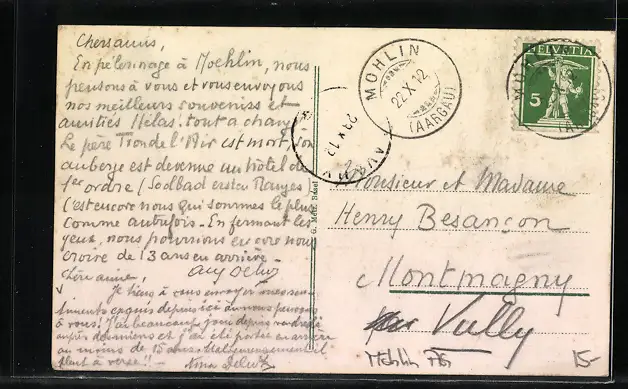 Chers amis,
En pèlerinage à Moehlin, nous
pensons à vous et vous envoyons
nos meilleurs souvenirs et
amitiés. Hélas! tout a changé
Le père Tron de l'Air est mort, son
auberge est devenue un hôtel de
1er ordre (Soolbad ersten Ranges)
C'est encore nous qui sommes le plus
comme autrefois. En fermant les
yeux, nous pourrions encore nous
croire de 13 ans en arrière.
Chère amie,
Je tiens à vous envoyer mes sen-
timents depuis ici où nous pensons
à vous! J'ai beaucoup joui depuis
et j'ai été portée en arrière
au moins de 15 ans.
pleut à verse!!
G. Metz, Basel
MÖHLIN
22.X.12
(AARGAU)
23 X 12
HELVETIA
5
Monsieur et Madame
Henry Besançon
Montmagny
Vully
Möhlin
15-